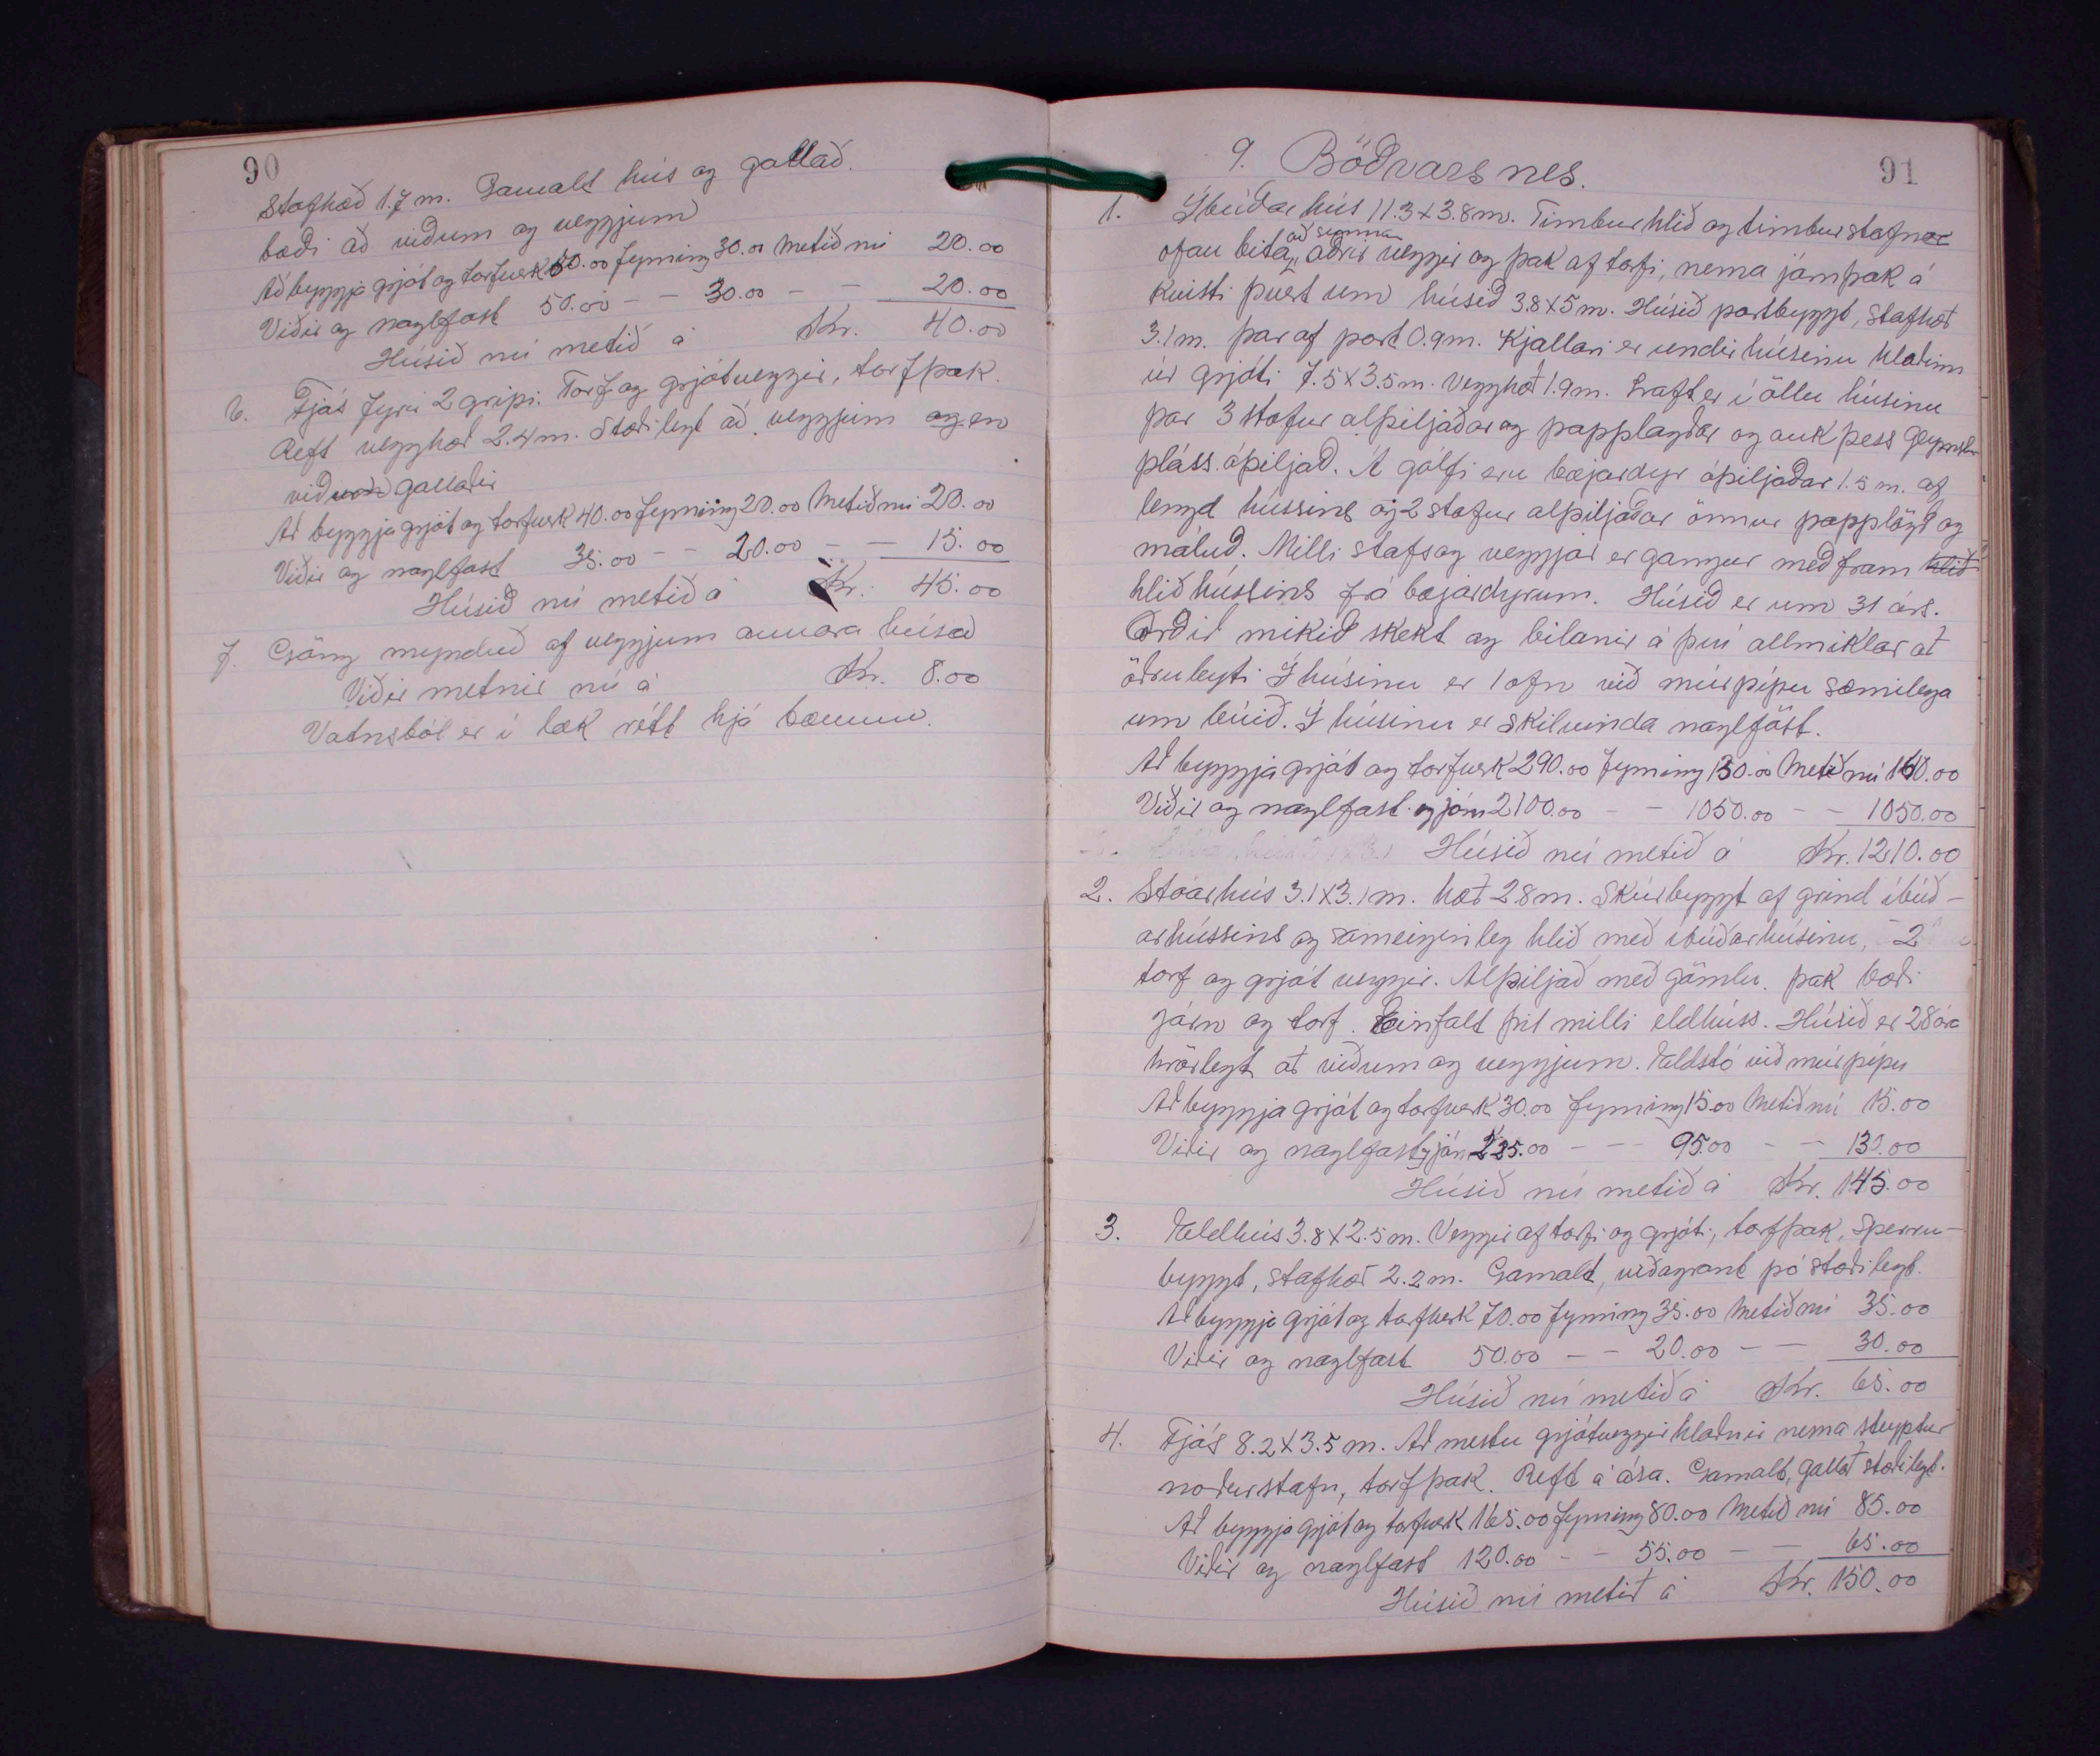 90
Stafhæð 1.7 m. Gamalt hús og gallað.
bæði að viðum og veggjum
Að byggja grjót og torfverk 50.00 fyrning 30.00 Metið nú 20.00
Viðir og naglfast 50.00 – – 30.00 – – 20.00
Húsið nú metið á Kr. 40.00
6. Fjós fyrir 2 gripi. Torf og grjótveggir, torfþak.
Reft vegghæð 2.4 m. Stæðilegt að veggjum og en
viðum gallaðir
Að byggja grjót og torfverk 40.00 fyrning 20.00 Metið nú 20.00
Viðir og naglfast 35.00 – – 20.00 – – 15.00
Húsið nú metið á Kr. 45.00
7. Göng mynduð af veggjum annara húsa
Viðir metnir nú á Kr. 8.00
Vatnsból er í læk rétt hjá bænum.
91
9. Böðvarsnes.
1. Íbúðarhús 11.3 x 3.8 m. Timburhlið og timburstafnar
að sunnan
ofan bita, aðrir veggir og þak af torfi, nema járnþak á
kvisti þvert um húsið 3.8 x 5 m. Húsið portbyggt, stafhæð
3.1 m. þar af port 0.9 m. Kjallari er undir húsinu hlaðinn
úr grjóti 7.5 x 3.5 m. Vegghæð 1.9 m. Loft er í öllu húsinu
þar 3 stofur alþiljaðar og papplagðar og auk þess geymslu
pláss óþiljað. Á gólfi eru bæjardyr óþiljaðar 1.5 m. af
lengd hússins og 2 stofur alþiljaðar önnur papplögð og
máluð. Milli stafs og veggjar er gangur með fram hlið
hlið hússins frá bæjardyrum. Húsið er um 31 árs.
Orðið mikið skekt og bilanir á því allmiklar að
öðru leyti Í húsinu er 1 ofn við múrpípu sæmilega
um búið. Í húsinu er skilvinda naglföst.
Að byggja grjót og torfverk 290.00 fyrning 130.00 Metið nú 160.00
Viðir og naglfast og járn 2100.00 – – 1050.00 – – 1050.00
Húsið nú metið á Kr. 1210.00
2. Stóarhús 3.1 x 3.1 m. hæð 2.8 m. Skúrbyggt af grind íbúð-
arhússins og sameiginleg hlið með íbúðarhúsinu, 2
torf og grjót veggir. Alþiljað með gömlu. þak bæði
járn og torf. Einfalt þil milli eldhúss. Húsið er 28 ára
hrörlegt að viðum og veggjum. Eldstó við múrpípu
Að byggja grjót og torfverk 30.00 fyrning 15.00 Metið nú 15.00
Viðir og naglfast og járn 225.00 – – 95.00 – – 130.00
Húsið nú metið á Kr. 145.00
3. Eldhús 3.8 x 2.5 m. Veggir af torfi og grjóti, torfþak, sperru-
byggt, stafhæð 2.2 m. Gamalt, viðagrant þó stæðilegt.
Að byggja grjót og torfverk 70.00 fyrning 35.00 Metið nú 35.00
Viðir og naglfast 50.00 – – 20.00 – – 30.00
Húsið nú metið á Kr. 65.00
4. Fjós 8.2 x 3.5 m. Að mestu grjótveggir hlaðnir nema steyptur
norðurstafn, torfþak. Reft á ása. Gamalt, gallað stæðilegt.
Að byggja grjót og torfverk 165.00 fyrning 80.00 Metið nú 85.00
Viðir og naglfast 120.00 – – 55.00 – – 65.00
Húsið nú metið á Kr. 150.00